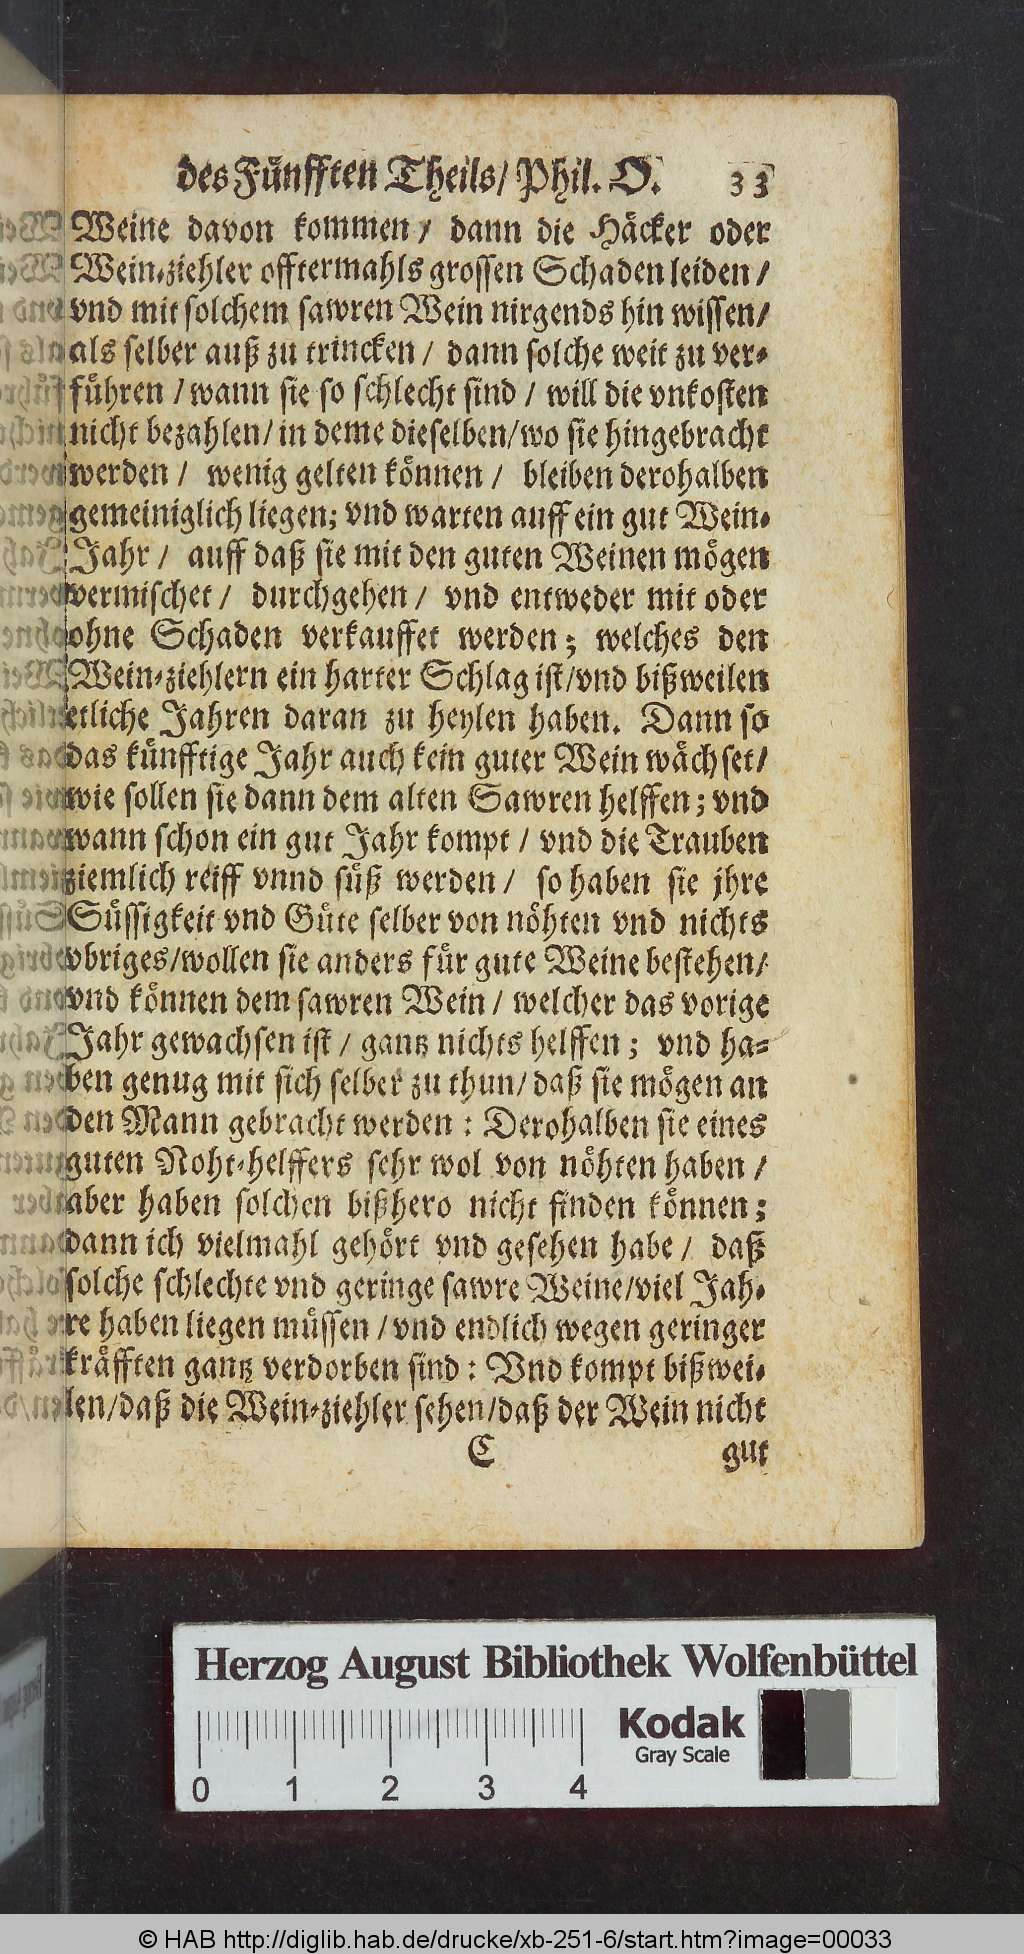 des Fünfften Theils/ Phil. O. 33
Weine davon kommen/ dann die Häcker oder
Wein-ziehler offtermahls grossen Schaden leiden/
vnd mit solchem sawren Wein nirgends hin wissen/
als selber auß zu trincken/ dann solche weit zu ver-
führen/ wann sie so schlecht sind/ will die vnkosten
nicht bezahlen/ in deme dieselben/ wo sie hingebracht
werden/ wenig gelten können/ bleiben derohalben
gemeiniglich liegen; vnd warten auff ein gut Wein-
Jahr/ auff daß sie mit den guten Weinen mögen
vermischet/ durchgehen/ vnd entweder mit oder
ohne Schaden verkauffet werden; welches den
Wein-ziehlern ein harter Schlag ist/ vnd bißweilen
etliche Jahren daran zu heylen haben. Dann so
das künfftige Jahr auch kein guter Wein wächset/
wie sollen sie dann dem alten Sawren helffen; vnd
wann schon ein gut Jahr kompt/ vnd die Trauben
ziemlich reiff vnnd süß werden/ so haben sie jhre
Süssigkeit vnd Güte selber von nöhten vnd nichts
vbriges/ wollen sie anders für gute Weine bestehen/
vnd können dem sawren Wein/ welcher das vorige
Jahr gewachsen ist/ gantz nichts helffen; vnd ha-
ben genug mit sich selber zu thun/ daß sie mögen an
den Mann gebracht werden: Derohalben sie eines
guten Noht-helffers sehr wol von nöhten haben/
aber haben solchen bißhero nicht finden können;
dann ich vielmahl gehört vnd gesehen habe/ daß
solche schlechte vnd geringe sawre Weine/ viel Jah-
re haben liegen müssen/ vnd endlich wegen geringer
kräfften gantz verdorben sind: Vnd kompt bißwei-
len/ daß die Wein-ziehler sehen/ daß der Wein nicht
C gut
Herzog August Bibliothek Wolfenbüttel
Kodak
Gray Scale
0 1 2 3 4
© HAB http://diglib.hab.de/drucke/xb-251-6/start.htm?image=00033